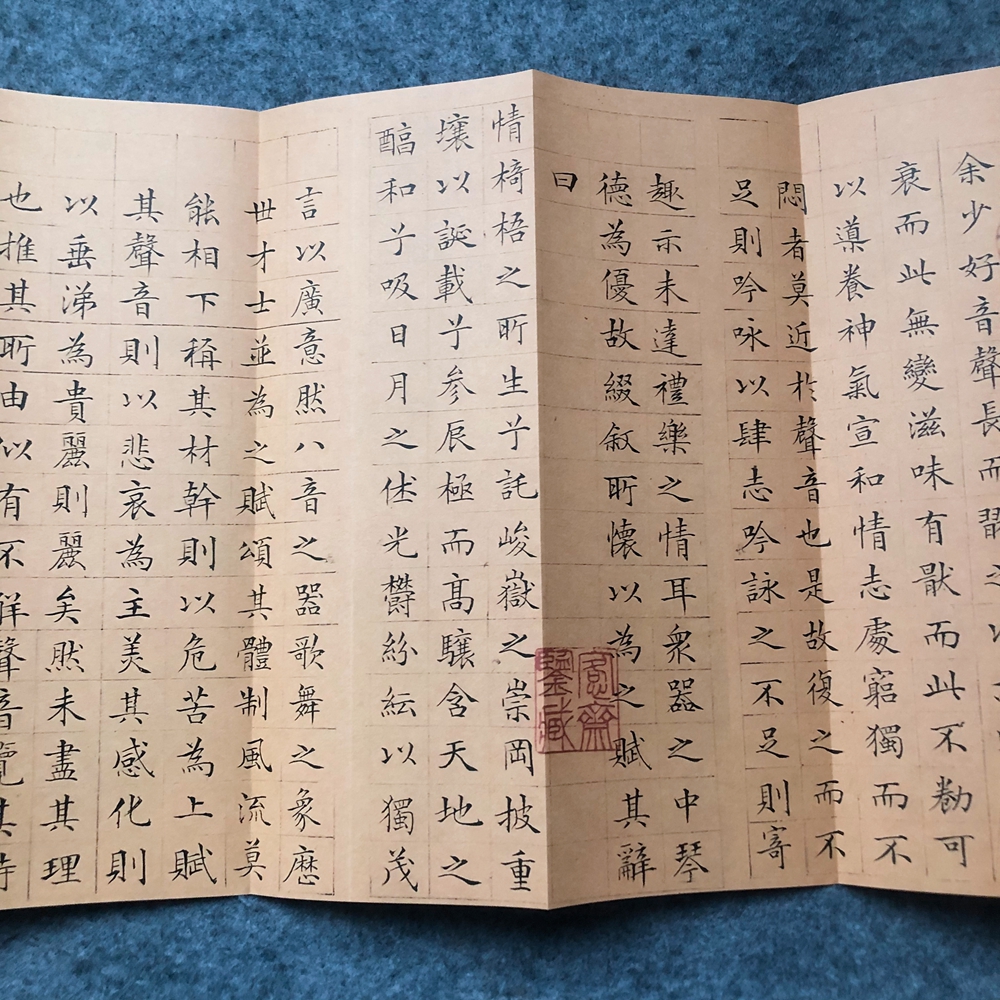 余少好音聲長而翫之
衰而此無變滋味有猒而此不勌可
以導養神氣宣和情志處窮獨而不
悶者莫近於聲音也是故復之而不
足則吟咏以肆志吟詠之不足則寄
趣示未達禮樂之情耳衆器之中琴
德為優故綴敘所懷以為之賦其辭
曰
愙齋鑒藏
情椅梧之所生兮託峻嶽之崇岡披重
壤以誕載兮参辰極而高驤含天地之
醕和兮吸日月之休光欝紛紜以獨茂
言以廣意然八音之器歌舞之象歷
世才士並為之賦頌其體制風流莫
能相下稱其材幹則以危苦為上賦
其聲音則以悲哀為主美其感化則
以垂涕為貴麗則麗矣然未盡其理
也推其所由似有不解聲音覽其